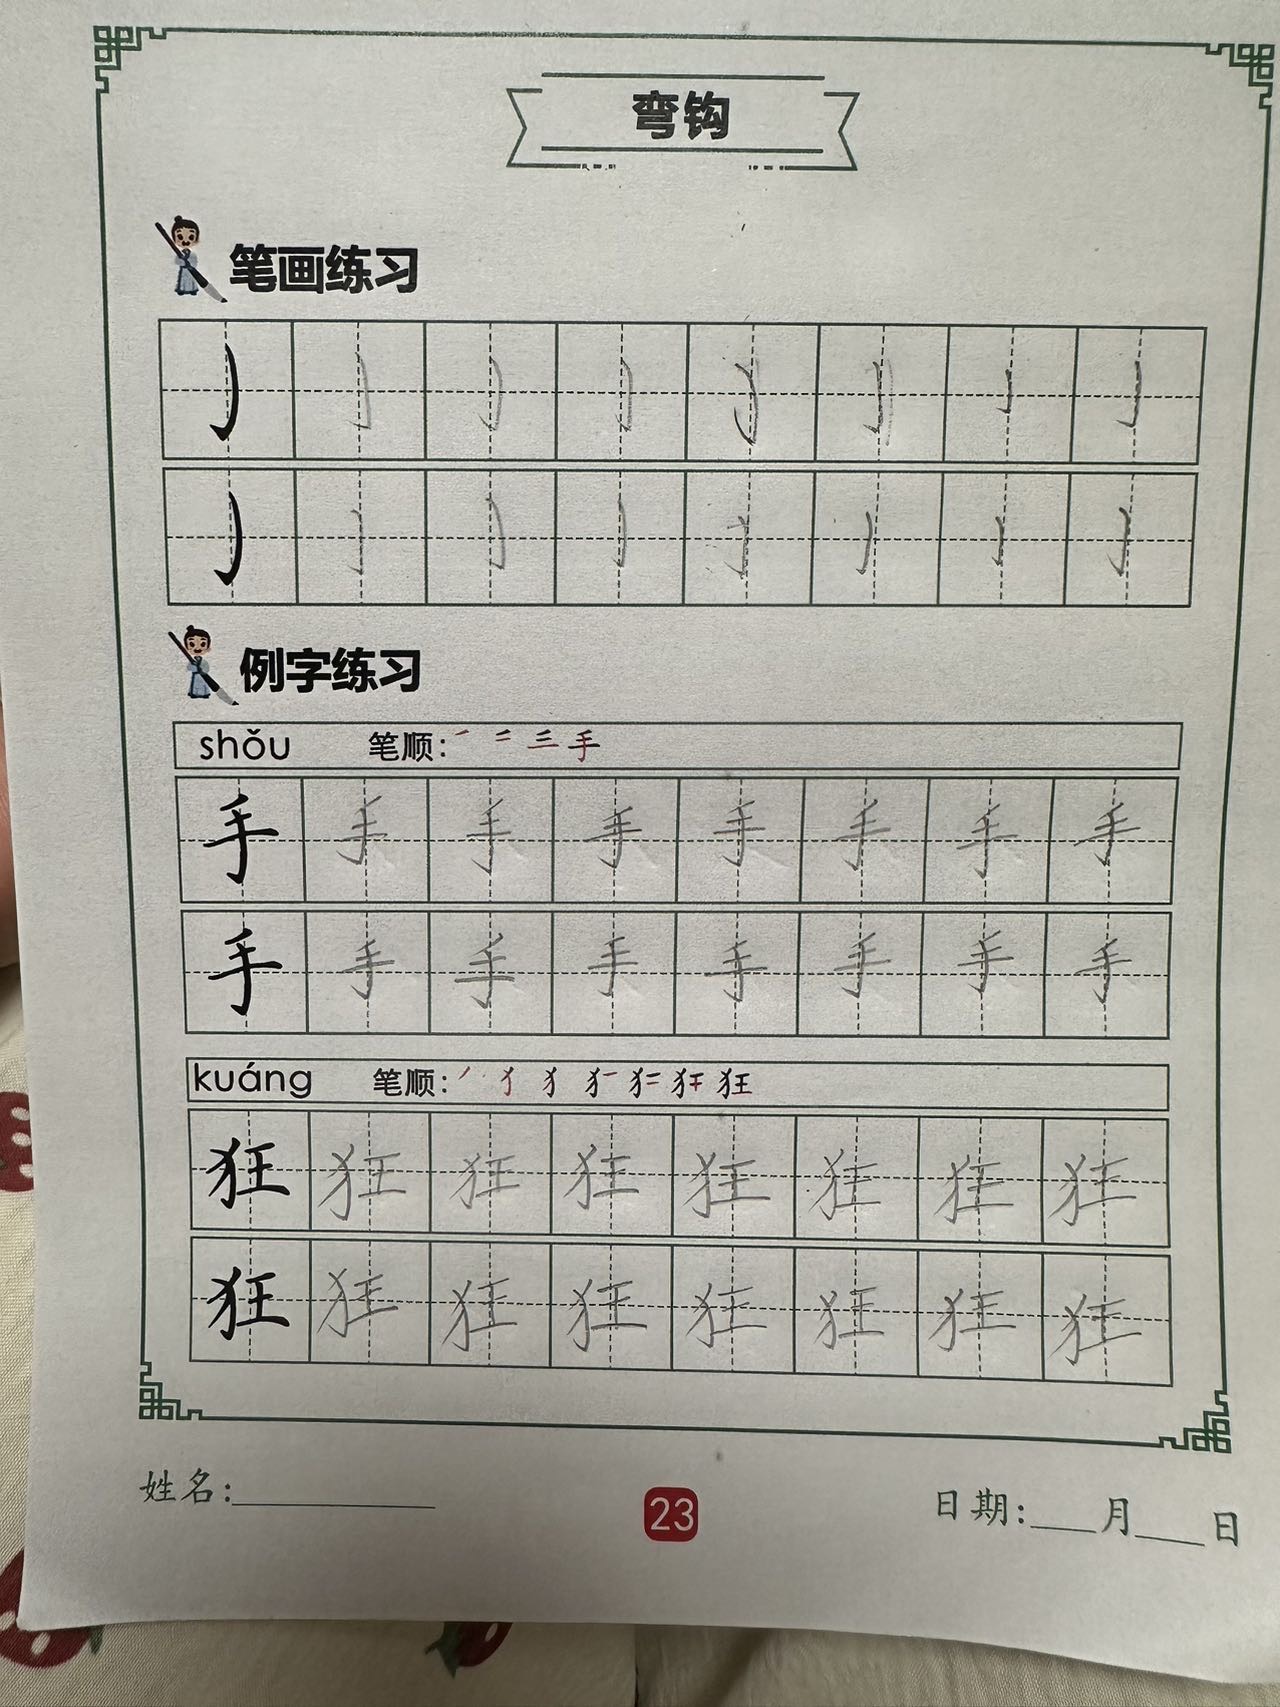 弯钩
笔画练习
例字练习
shǒu 笔顺: 一 二 三 手
手 手 手 手 手 手 手 手
手 手 手 手 手 手 手 手
kuáng 笔顺: 狂
狂 狂 狂 狂 狂 狂 狂 狂
狂 狂 狂 狂 狂 狂 狂 狂
姓名: 23 日期: 月 日